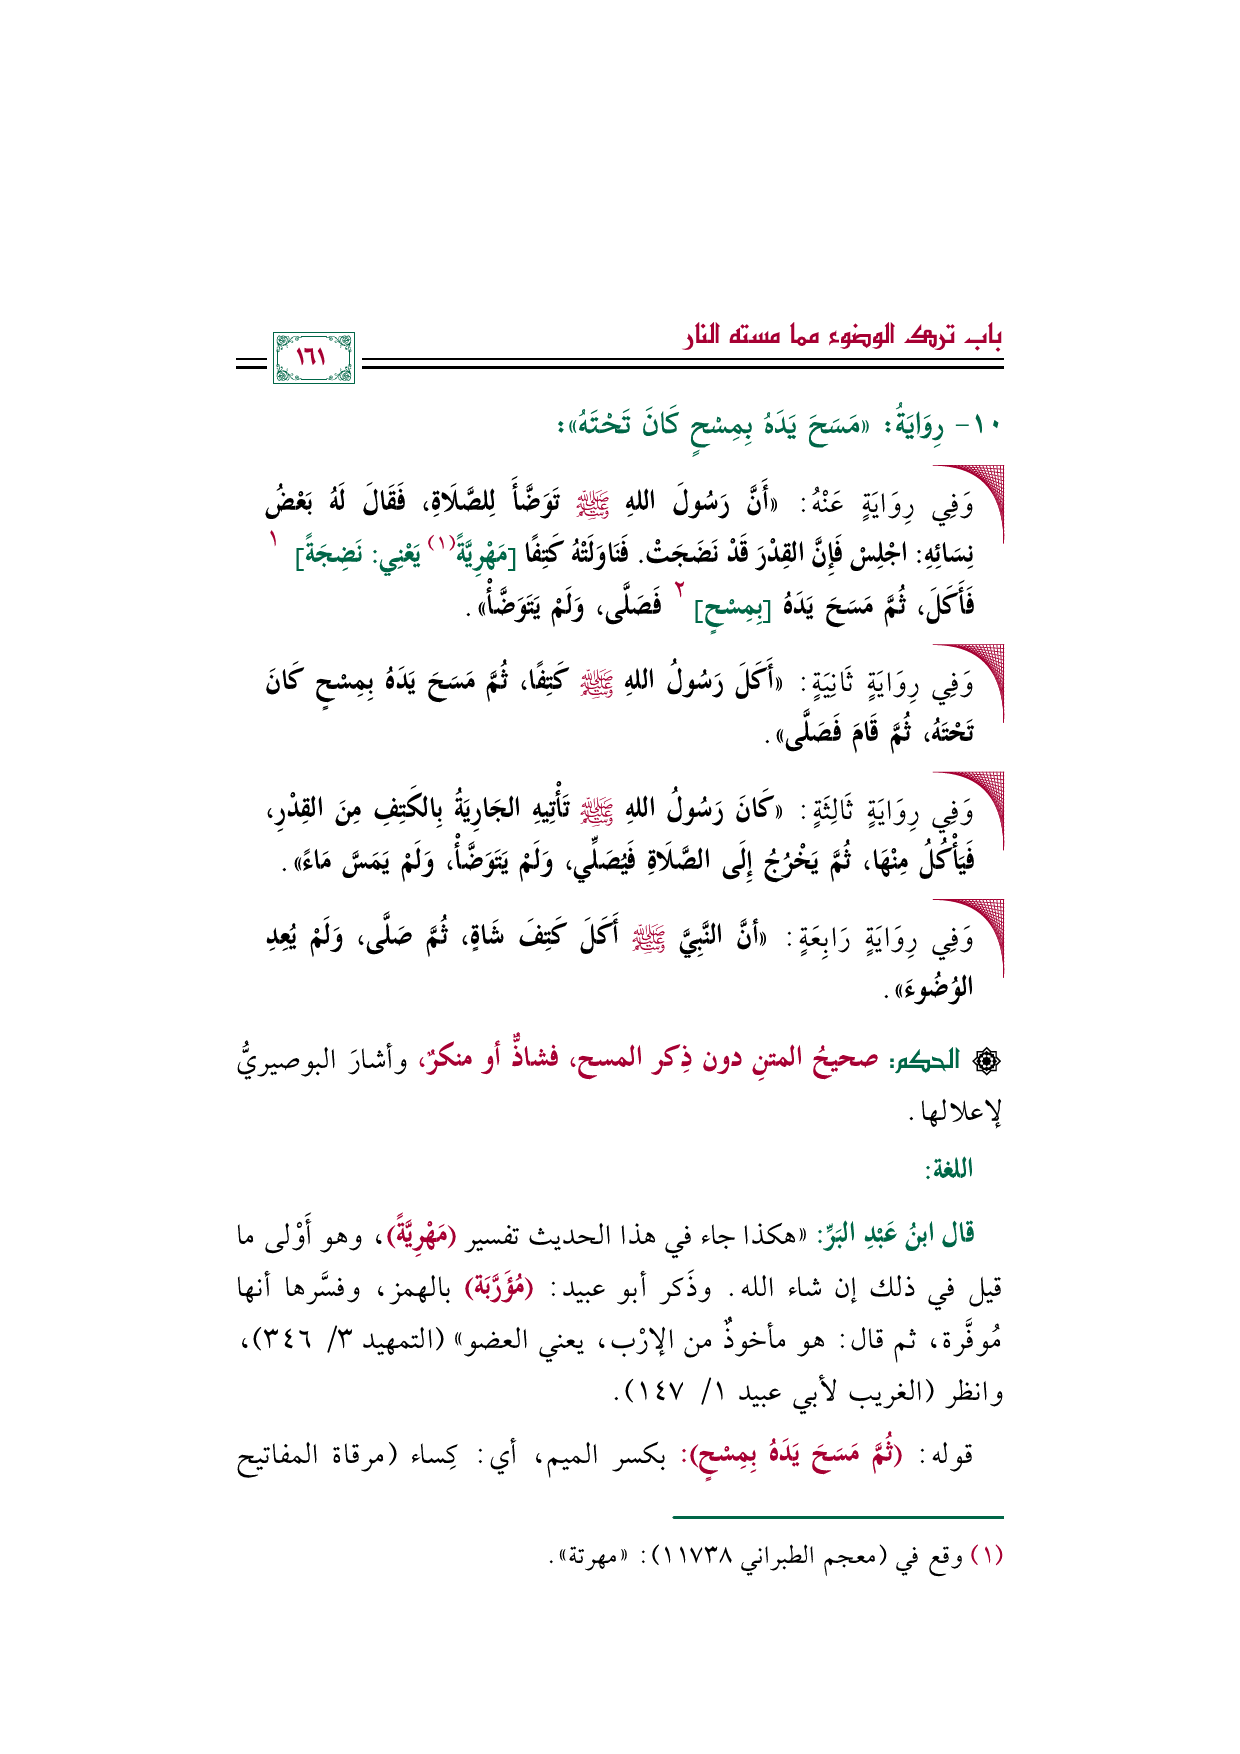 باب ترك الوضوء مما مسته النار
١٦١
١٠- رِوَايَةُ: «مَسَحَ يَدَهُ بِمِسْحٍ كَانَ تَحْتَهُ»:
وَفِي رِوَايَةٍ عَنْهُ: «أَنَّ رَسُولَ اللهِ ﷺ تَوَضَّأَ لِلصَّلَاةِ، فَقَالَ لَهُ بَعْضُ
نِسَائِهِ: اجْلِسْ فَإِنَّ القِدْرَ قَدْ نَضَجَتْ. فَنَاوَلَتْهُ كَتِفًا [مَهْرِيَّةً(١) يَعْنِي: نَضِجَةً] ١
فَأَكَلَ، ثُمَّ مَسَحَ يَدَهُ [بِمِسْحٍ] ٢ فَصَلَّى، وَلَمْ يَتَوَضَّأْ».
وَفِي رِوَايَةٍ ثَانِيَةٍ: «أَكَلَ رَسُولُ اللهِ ﷺ كَتِفًا، ثُمَّ مَسَحَ يَدَهُ بِمِسْحٍ كَانَ
تَحْتَهُ، ثُمَّ قَامَ فَصَلَّى».
وَفِي رِوَايَةٍ ثَالِثَةٍ: «كَانَ رَسُولُ اللهِ ﷺ تَأْتِيهِ الجَارِيَةُ بِالكَتِفِ مِنَ القِدْرِ،
فَيَأْكُلُ مِنْهَا، ثُمَّ يَخْرُجُ إِلَى الصَّلَاةِ فَيُصَلِّي، وَلَمْ يَتَوَضَّأْ، وَلَمْ يَمَسَّ مَاءً».
وَفِي رِوَايَةٍ رَابِعَةٍ: «أنَّ النَّبِيَّ ﷺ أَكَلَ كَتِفَ شَاةٍ، ثُمَّ صَلَّى، وَلَمْ يُعِدِ
الوُضُوءَ».
الحكم: صحيحُ المتنِ دون ذِكر المسح، فشاذٌّ أو منكرٌ، وأشارَ البوصيريُّ
لإعلالها.
اللغة:
قال ابنُ عَبْدِ البَرِّ: «هكذا جاء في هذا الحديث تفسير (مَهْرِيَّةً)، وهو أَوْلى ما
قيل في ذلك إن شاء الله. وذَكر أبو عبيد: (مُؤَرَّبَة) بالهمز، وفسَّرها أنها
مُوفَّرة، ثم قال: هو مأخوذٌ من الإرْب، يعني العضو» (التمهيد ٣/ ٣٤٦)،
وانظر (الغريب لأبي عبيد ١/ ١٤٧).
قوله: (ثُمَّ مَسَحَ يَدَهُ بِمِسْحٍ): بكسر الميم، أي: كِساء (مرقاة المفاتيح
(١) وقع في (معجم الطبراني ١١٧٣٨): «مهرتة».